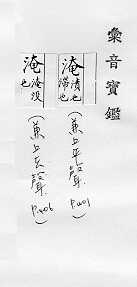 彙音寶鑑
淹 漬也滯也
(兼上平聲 P.401)
淹 淹没也
(兼上去聲 P.406)